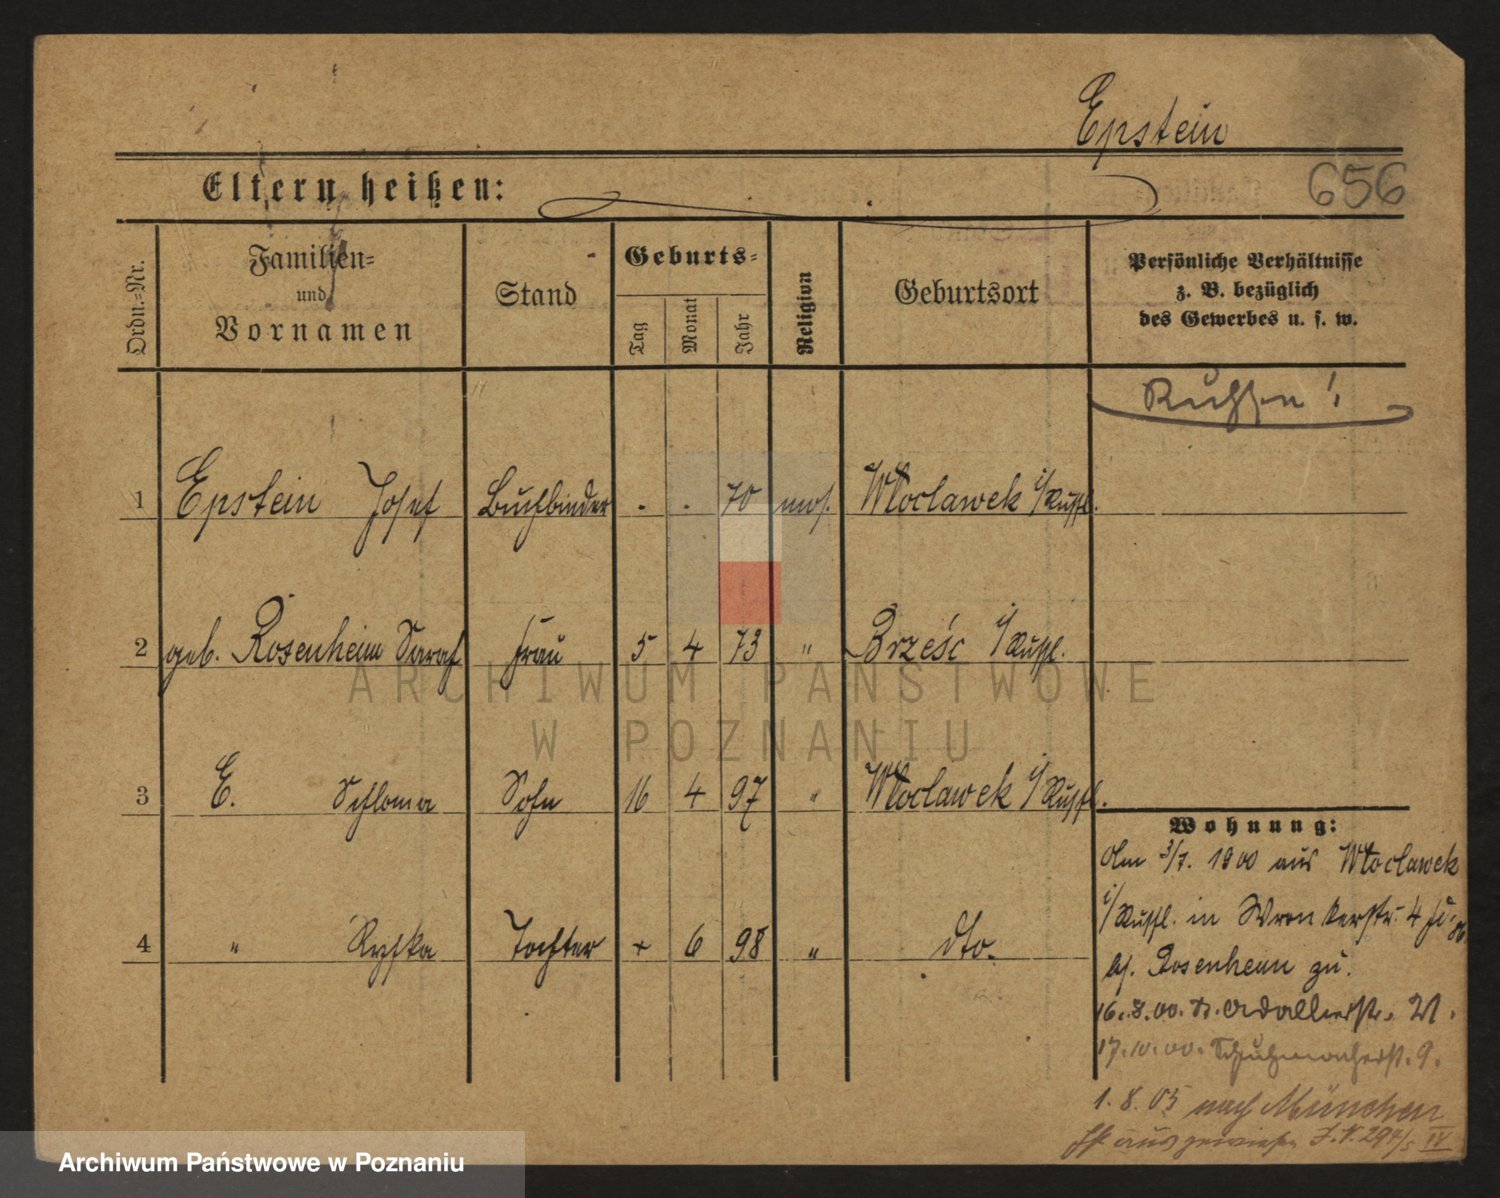 Epstein
Eltern heißen:
656
Ordn.-Nr.
Familien-
und
Vornamen
Stand
Geburts-
Tag
Monat
Jahr
Religion
Geburtsort
Persönliche Verhältnisse
z. B. bezüglich
des Gewerbes u. s. w.
Russen!
1 Epstein Josef Buchbinder . . 70 mos. Włocławek i/Rußl.
2 geb. Rosenheim Sarah Frau 5 4 73 " Brześć i/Rußl.
3 E. Schloma Sohn 16 4 97 " Włocławek i/Rußl.
4 " Ryfka Tochter + 6 98 " dto.
Wohnung:
Am 3/7. 1900 aus Włocławek
i/Rußl. in Wronkerstr. 4
bei Rosenheim zu.
16.8.00. Wallstr. 21.
17.10.00. Schuhmacherstr. 9.
1.8.05 nach München
ausgewiesen J.N. 294/5 IV
ARCHIWUM PAŃSTWOWE
W POZNANIU
Archiwum Państwowe w Poznaniu